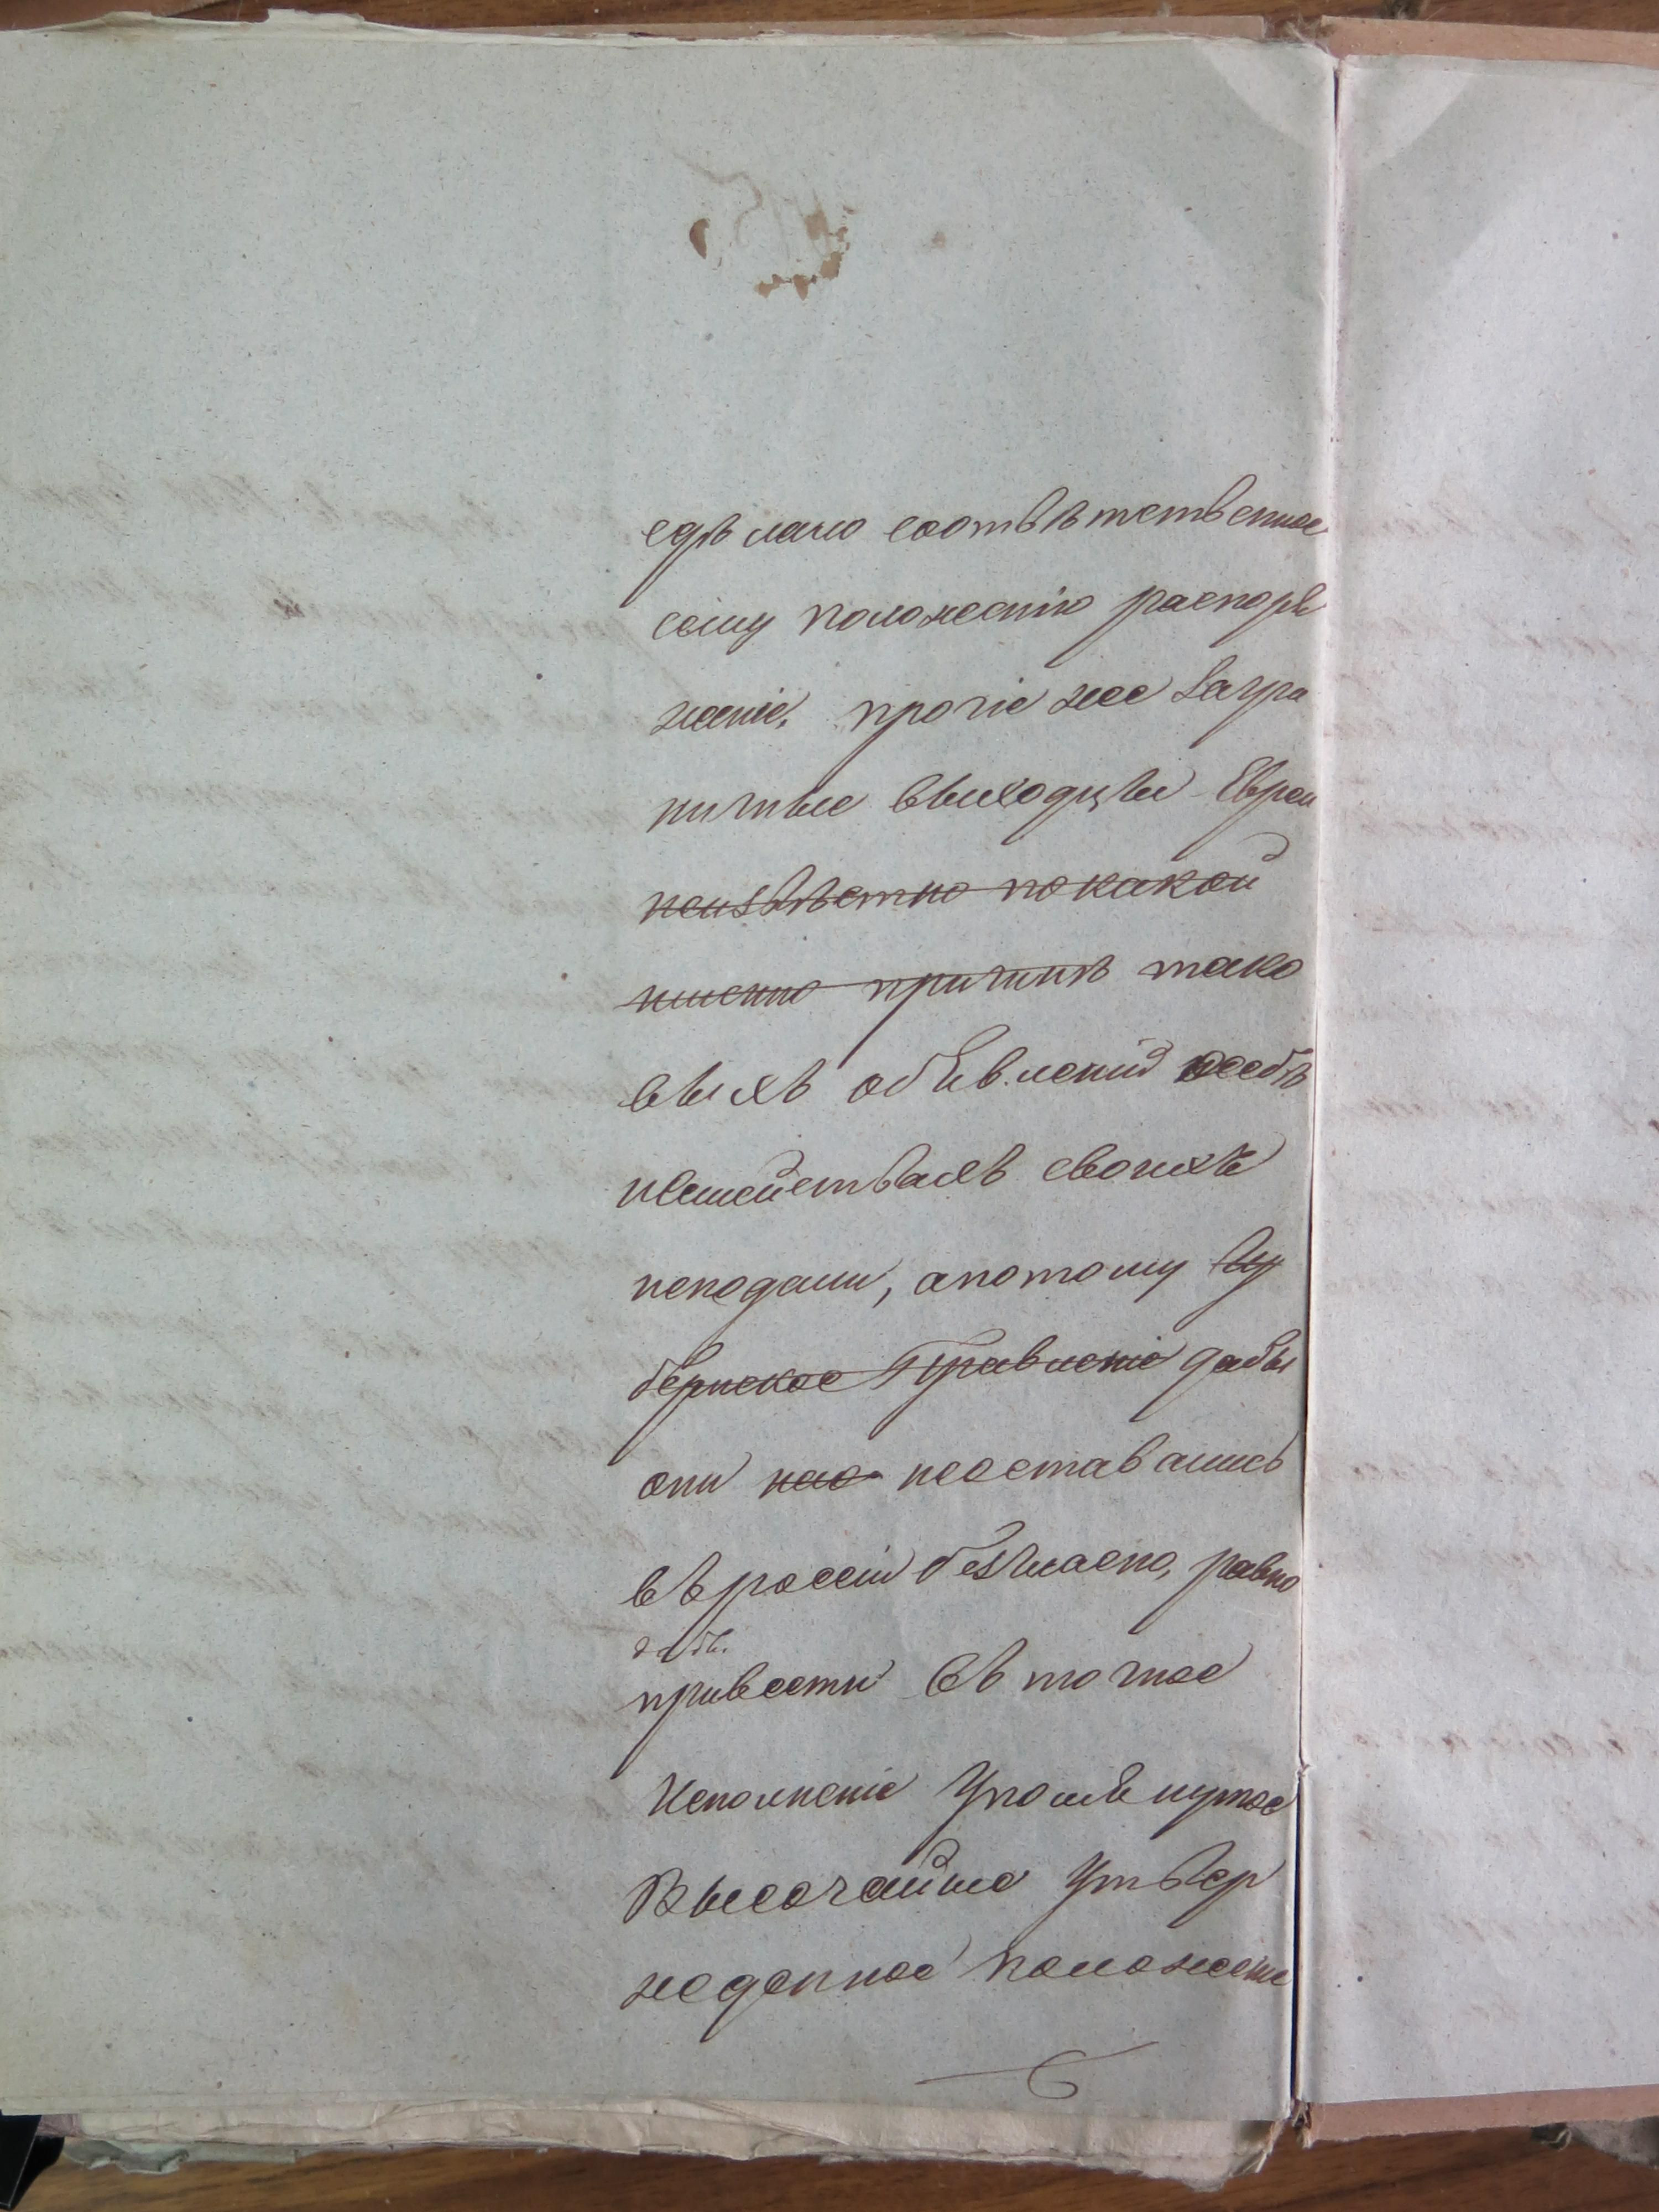 сдѣлано соотвѣтственное
сему положенію распоря
женіе, прочіе же загра
ничные выходцы Евреи
неизвѣстно по какой
именно причинѣ тако
выхъ объявленій о себѣ
исемействахъ своихъ
неподали, апотому Гу
бернское Правленіе дабы
они нео неоставались
въ россіи безгласно, равно
дабы
привести въ точное
Исполненіе Упомянутое
Высочайше Утвер
жденное положеніе